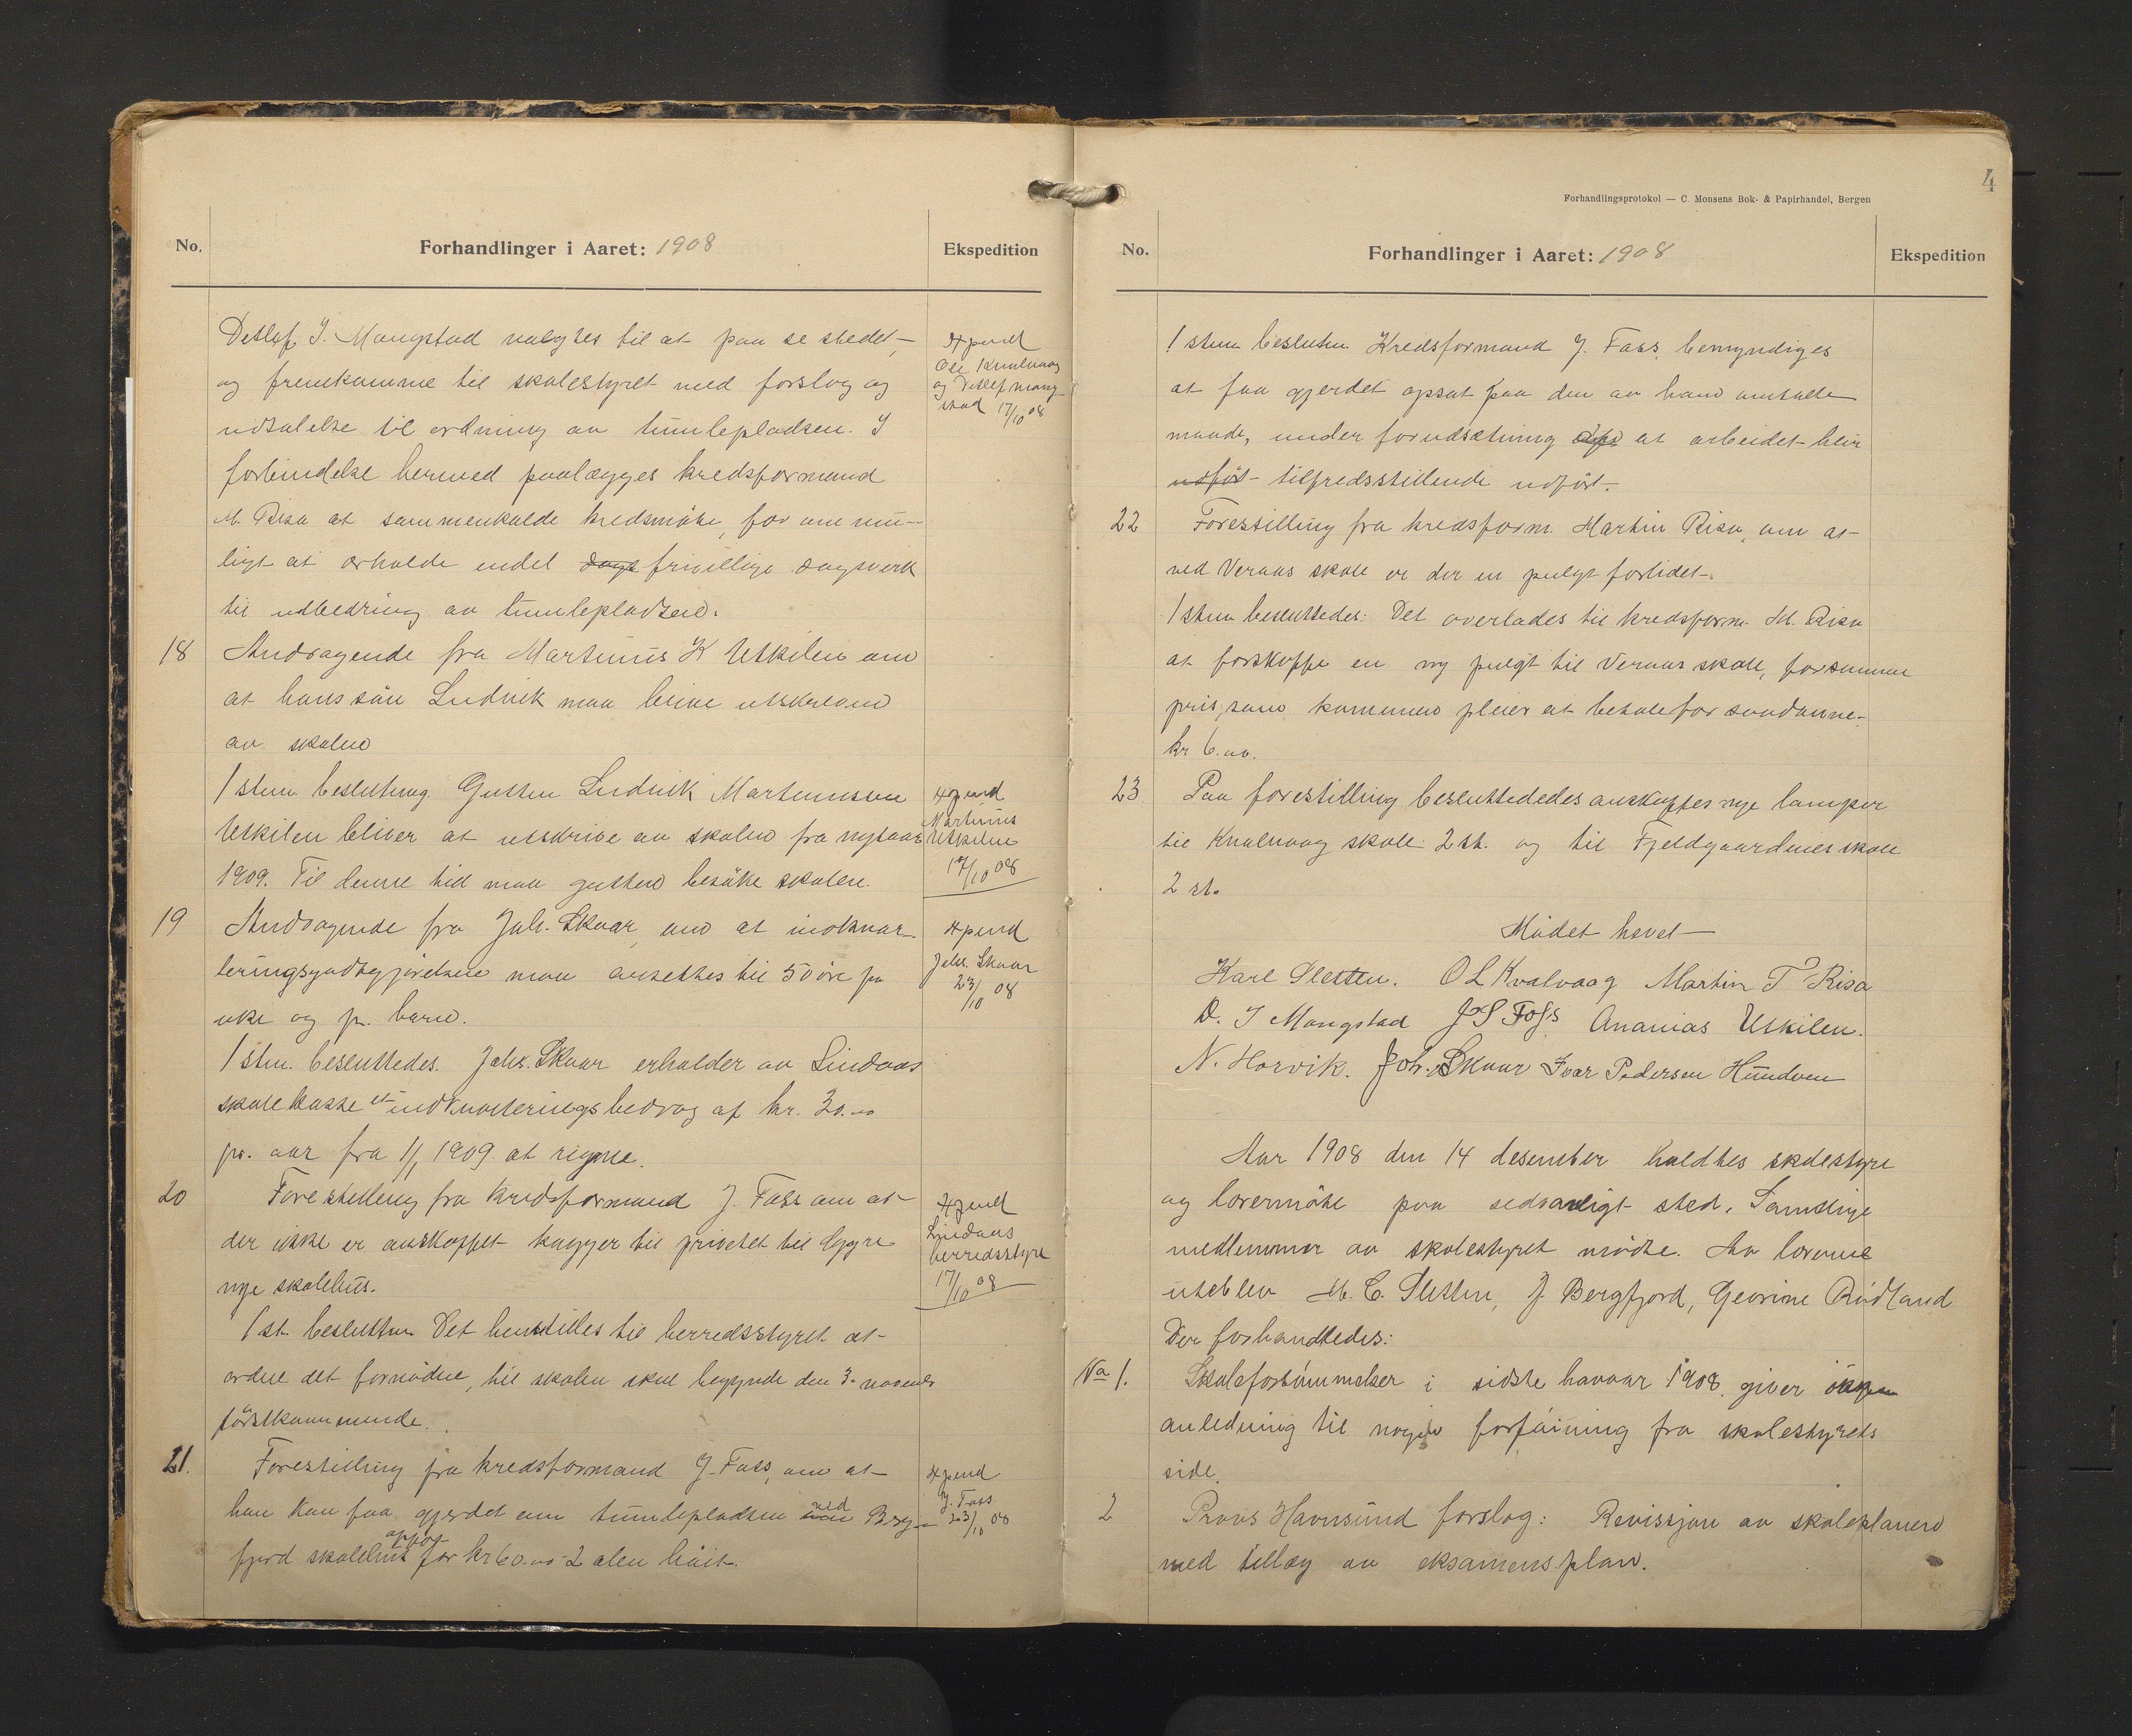 No.
Forhandlinger i Aaret: 1908
Ekspedition
Detlef J. Mangstad valgtes til at paa se stedet
og fremkomme til skolestyret med forslag og
udtalelse til ordning av tumlepladsen. I
forbindelse hermed paalægges kredsformand
M. Risa at sammenkalde kredsmøte, for om mu-
ligt at erholde endel dags frivillige dagsverk
til udbedring av tumlepladsen.
Expend
Ole Kvalvaag
og Detlef Mang
stad 17/10 08
18 Andragende fra Martinus K Utkilen om
at hans sön Ludvik maa blive utskreven
av skolen
1 stem. beslutning. Gutten Ludvik Martinussen
Utkilen bliver at utskrive av skolen fra nytaar
1909. Til denne tid maa gutten besøke skolen.
Expend
Martinus
Utkilen
17/10 08
19 Andragende fra Joh. Skaar om at indkvar-
teringsgodtgjörelsen maa ansettes til 50 öre pr
uke og pr. barn.
1 stm. besluttedes. Johs. Skaar erholder av Lindaas
skolekasse et indkvarteringsbedrag af kr. 30.00
pr. aar fra 1/1 1909 at regne.
Expend
Johs. Skaar
23/10 08
20 Forestilling fra kredsformand J. Foss om at
der ikke er anskaffet kagger til privetet til Lygre
nye skolehus.
1 st. beslutten Det henstilles til herredsstyret at
ordne det fornödne, til skolen skal begynde den 3. novemb
förstkommende.
Expend
Lindaas
herredsstyre
17/10 08
21. Forestilling fra kredsformand J. Foss, om at
han kan faa gjerdet om tumlepladsen ved Berg-
fjord skolehus opsat for kr 60.00 2 alen höit.
Expend
J. Foss
23/10 08
Forhandlingsprotokol — C. Monsens Bok- & Papirhandel, Bergen
4
No.
Forhandlinger i Aaret: 1908
Ekspedition
1 stem besluten Kredsformand J. Foss, bemyndiges
at faa gjerdet opsat paa den av ham omtalte
maade, under forudsætning af at arbeidet blir
udfört tilfredsstillende udfört.
22 Forestilling fra kredsform. Martin Risa, om at
ved Veraas skole er der en pulgt forlidet.
1 stem besluttedes: Det overlades til kredsform. M. Risa
at forskaffe en ny pulgt til Veraas skole, for samme
pris, som kommunen pleier at betale for saadanne.
kr 6.00.
23 Paa forestilling besluttededes anskaffes nye lamper
til Kvalvaag skole 2 st. og til Fjeldgaardenes skole
2 st.
Mödet hevet
Karl Sletten. O L Kvalvaag Martin T Risa
D. J Mangstad J S Foss Ananias Utkilen.
N. Horvik. Joh. Skaar Ivar Pedersen Hundven
Aar 1908 den 14 desember holdtes skolestyre
og lærermöte paa sedvanligt sted. Samtlige
medlemmer av skolestyret mödte. Av lærerne
uteblev M. C. Sletten, J. Bergfjord, Georine Rödland
Der forhandledes:
No 1. Skoleforsömmelser i sidste halvaar 1908. giver ikke
anledning til nogen forföining fra skolestyrets
side.
2 Provs Havnsund forslag: Revissjon av skoleplanen
med tillæg av eksamensplan.